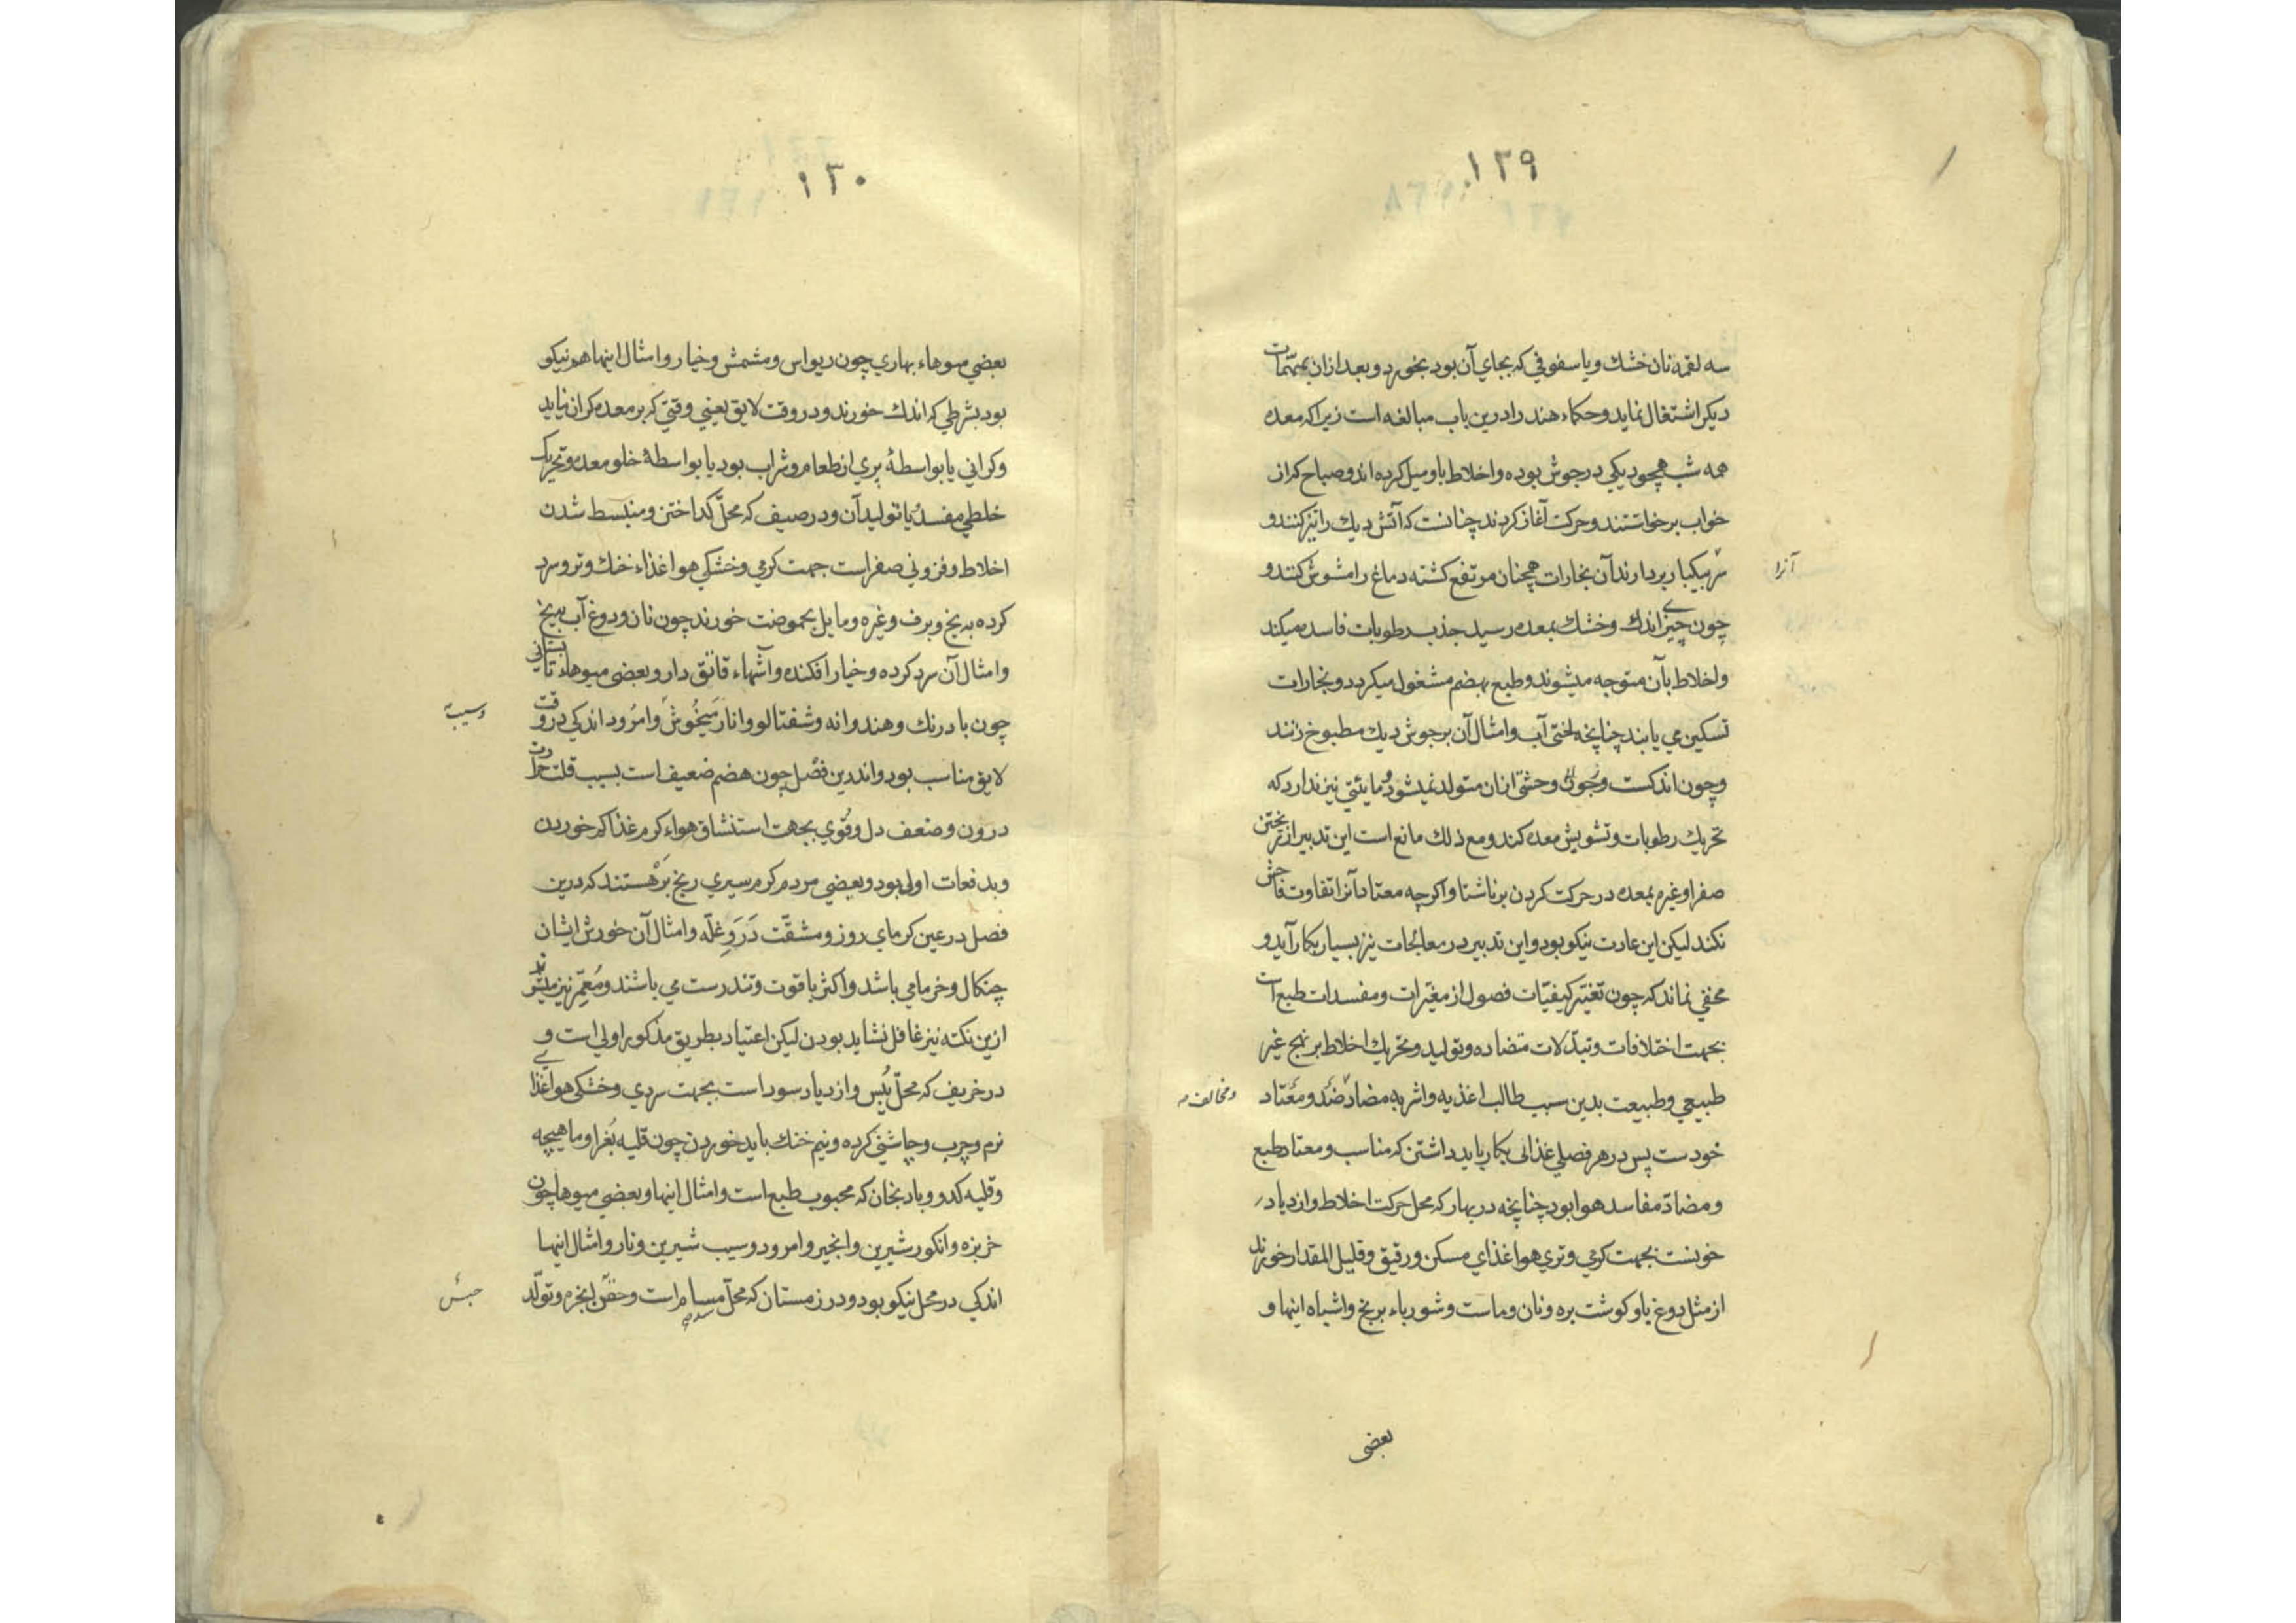 ١٢٩
سه لقمه نان خشك ويا سفوفي كه بجاي آن بود بخورد و بعد ازان بمهمّات
ديكر اشتغال نمايد وحكماء هند را درين باب مبالغه است زيرا كه معده
همه شب همچو ديكي در جوش بوده و اخلاط باو ميل كرده اند و صباح كه از
خواب برخواستند و حركت آغاز كردند چنانست كه آتش ديك را تيز كنند و
سرش بيكبار بردارند آن بخارات همچنان مرتفع كشته دماغ را مشوش كنند و
آنرا
چون چيزي اندك وخشك بمعده رسيد جذب رطوبات فاسده ميكند
واخلاط بآن متوجه ميشوند وطبع بهضم مشغول ميكردد و بخارات
تسكين مي يابند چنانچه لختي آب وامثال آن بر جوش ديك مطبوخ زنند
وچون اندكست وحشتي ازان متولد نميشود و مائيتي نيز ندارد كه
تحريك رطوبات وتشويش معده كند ومع ذلك مانع است اين تدبير از ريختن
صفرا وغيره بمعده در حركت كردن بر ناشتا واكرچه معتاد آنرا تفاوت فاحش
نكند ليكن اين عادت نيكو بود واين تدبير در معالجات نيز بسيار بكار آيد و
مخفي نماند كه چون تغيّر كيفيّات فصول از مغيّرات ومفسدات طبع است
بجهت اختلافات وتبدّلات متضاده وتوليد وتحريك اخلاط بر نهج غير
طبيعي وطبيعت بدين سبب طالب اغذيه واشربه مضادّ ضدّ ومعتاد
ومخالف
خودست پس در هر فصلي غذائي بكار بايد داشتن كه مناسب ومعتاد طبع
ومضادّ مفاسد هوا بود چنانچه در بهار كه محل حركت اخلاط وازدياد
خونست بجهت كرمي وتري هوا غذاي مسكن ورقيق وقليل المقدار خورند
از مثل دوغ با و كوشت بره ونان وماست وشورباء برنج واشباه اينها و
بعضى
١٣٠
بعضي ميوهاء بهاري چون ريواس ومشمش وخيار وامثال اينها هم نيكو
بود بشرطي كه اندك خورند و در وقت لايق يعني وقتي كه بر معده كران نيايد
وكراني يا بواسطهٔ پري از طعام وشراب بود يا بواسطهٔ خلو معده وتحريك
خلطي مفسد يا توليد آن ودر صيف كه محلّ كداختن ومنبسط شدن
اخلاط وفزوني صفراست جهت كرمي وخشكي هوا غذاء خنك وتر وسرد
كرده به يخ وبرف وغيره ومايل بحموضت خورند چون نان ودوغ آب بيخ
وامثال آن سرد كرده وخيار افكنده وآشهاء قاتق دار وبعضي ميوهاء تابستاني
چون بادرنك وهندوانه وشفتالو وانار ميخوش وامرود اندكي در وقت
وسيب
لايق مناسب بود واندرين فصل چون هضم ضعيف است بسبب قلت حرارت
درون وضعف دل وقوي بجهت استنشاق هواء كرم غذا كم خوردن
وبدفعات اولى بود وبعضي مردم كرم سيري رنج بر هستند كه درين
فصل در عين كرماي روز ومشقّت درو غلّه وامثال آن خورش ايشان
چنكال وخرما مي باشد واكثر با قوت وتندرست مي باشند ومعمّر نيز ميشوند
ازين نكته نيز غافل نشايد بودن ليكن اعتياد بطريق مذكور اولي است و
در خريف كه محلّ يُبس وازدياد سوداست بجهت سردي وخشكي هوا غذاي
نرم وچرب وچاشني كرده ونيم خنك بايد خوردن چون قليه بُغرا وماهيچه
وقليه كدو وبادنجان كه محبوب طبع است وامثال اينها وبعضي ميوها چون
خربزه وانكور شيرين وانجير وامرود وسيب شيرين ونار وامثال اينها
اندكي در محل نيكو بود ودر زمستان كه محلّ مسام است وحقن ابخره وتولّد